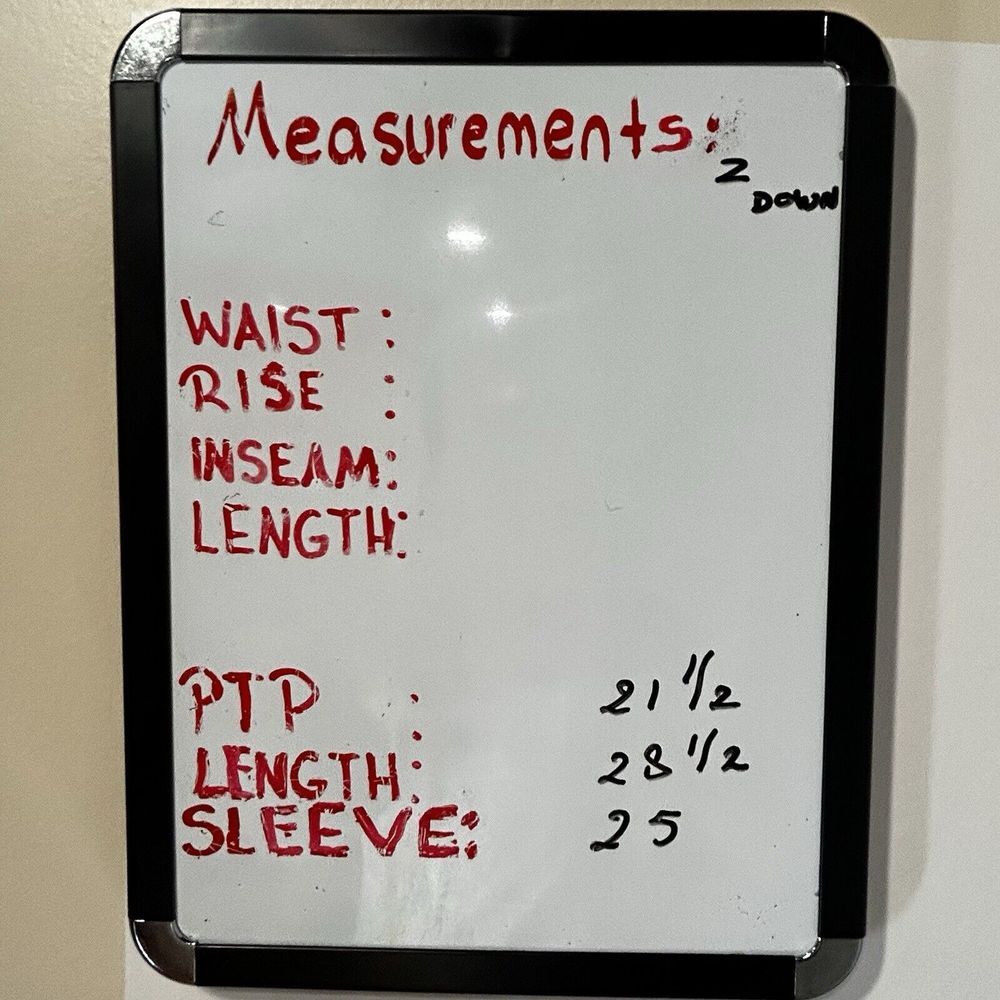 Measurements:
2
DOWN
WAIST :
RISE :
INSEAM:
LENGTH:
PTP : 21 1/2
LENGTH: 28 1/2
SLEEVE: 25